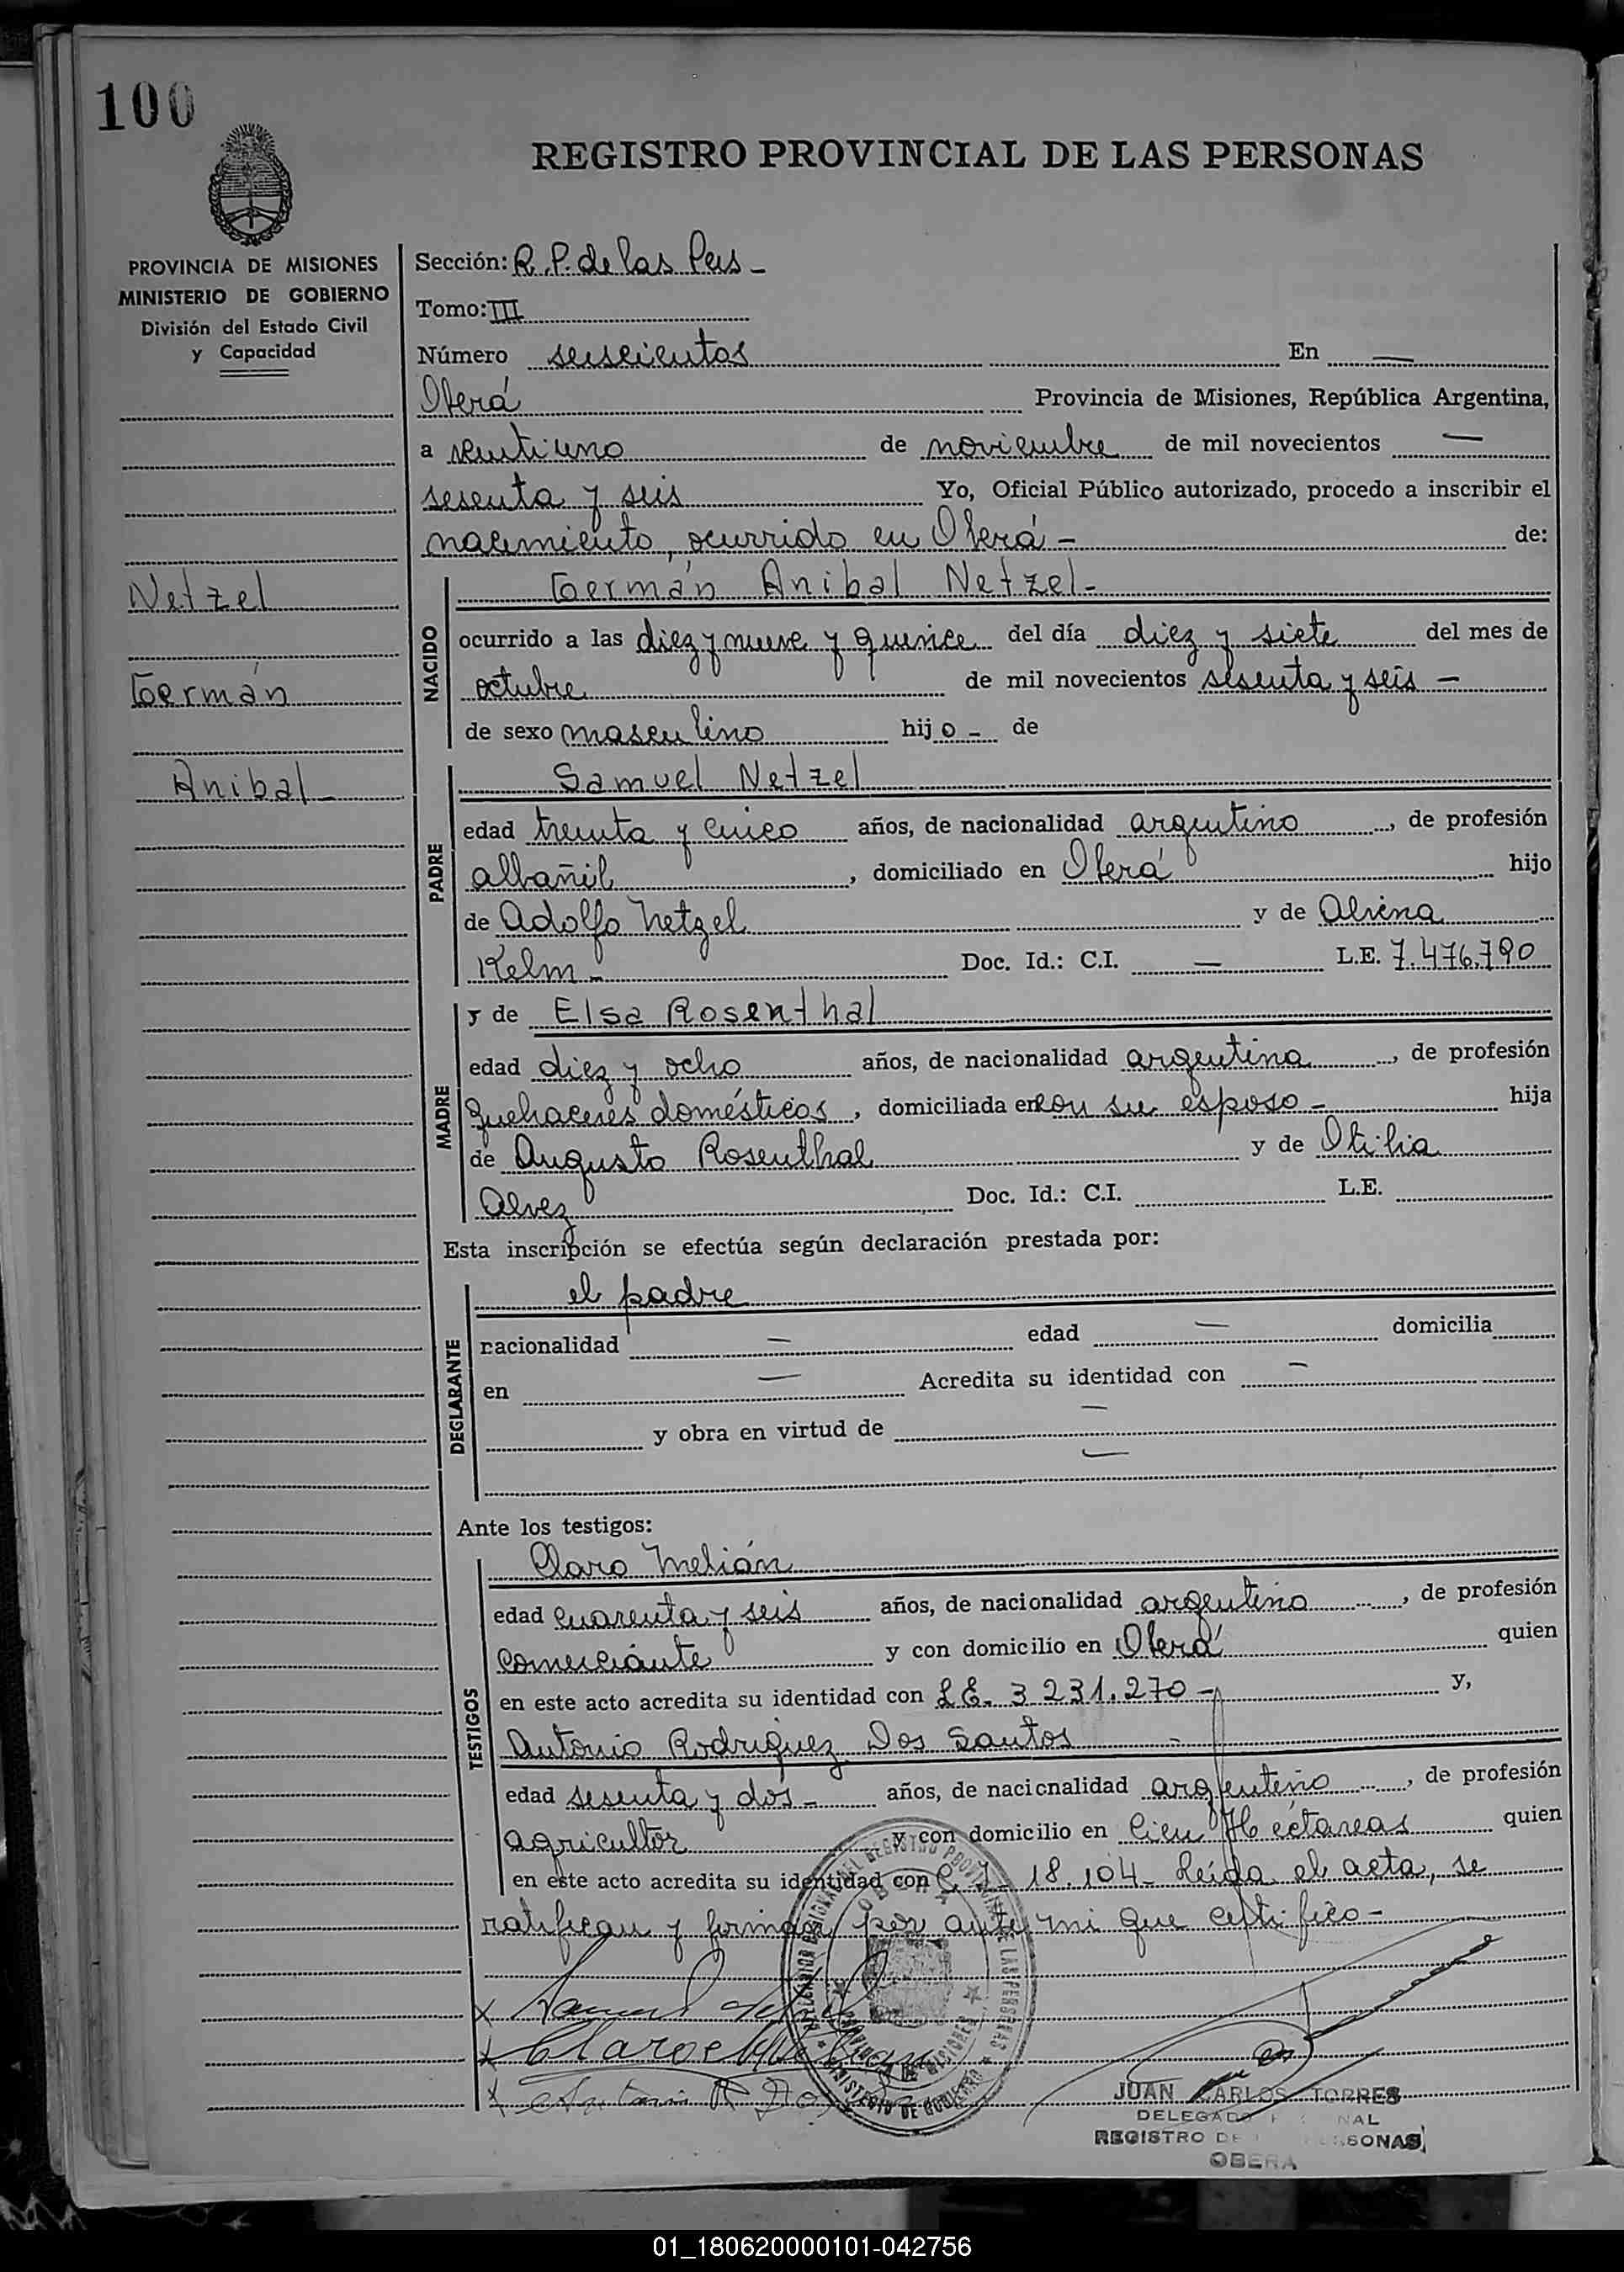 100
REGISTRO PROVINCIAL DE LAS PERSONAS
PROVINCIA DE MISIONES
MINISTERIO DE GOBIERNO
División del Estado Civil
y Capacidad
Netzel
Germán
Anibal -
Sección: R.P. de las Pers -
Tomo: III
Número seiscientos En —
Oberá Provincia de Misiones, República Argentina,
a veintiuno de noviembre de mil novecientos —
sesenta y seis Yo, Oficial Público autorizado, procedo a inscribir el
nacimiento, ocurrido en Oberá - de:
NACIDO
Germán Anibal Netzel -
ocurrido a las diez y nueve y quince del día diez y siete del mes de
octubre de mil novecientos sesenta y seis -
de sexo masculino hijo - de
PADRE
Samuel Netzel
edad treinta y cinco años, de nacionalidad argentino, de profesión
albañil, domiciliado en Oberá hijo
de Adolfo Netzel y de Alvina
Kelm - Doc. Id.: C.I. — L.E. 7.476.790
MADRE
y de Elsa Rosenthal
edad diez y ocho años, de nacionalidad argentina, de profesión
quehaceres domésticos, domiciliada en con su esposo - hija
de Augusto Rosenthal y de Otilia
Alvez Doc. Id.: C.I. L.E.
Esta inscripción se efectúa según declaración prestada por:
DECLARANTE
el padre
nacionalidad — edad — domicilia
en — Acredita su identidad con —
y obra en virtud de —
—
Ante los testigos:
TESTIGOS
Claro Melián
edad cuarenta y seis años, de nacionalidad argentino, de profesión
comerciante y con domicilio en Oberá quien
en este acto acredita su identidad con L.E. 3 231.270 - y,
Antonio Rodriguez Dos Santos -
edad sesenta y dos - años, de nacionalidad argentino, de profesión
agricultor y con domicilio en Cien Hectareas quien
en este acto acredita su identidad con C.I. 18.104 - Leída el acta, se
ratifican y firman por ante mi que certifico -
JUAN CARLOS TORRES
DELEGADO
REGISTRO DE
OBERA
01_180620000101-042756